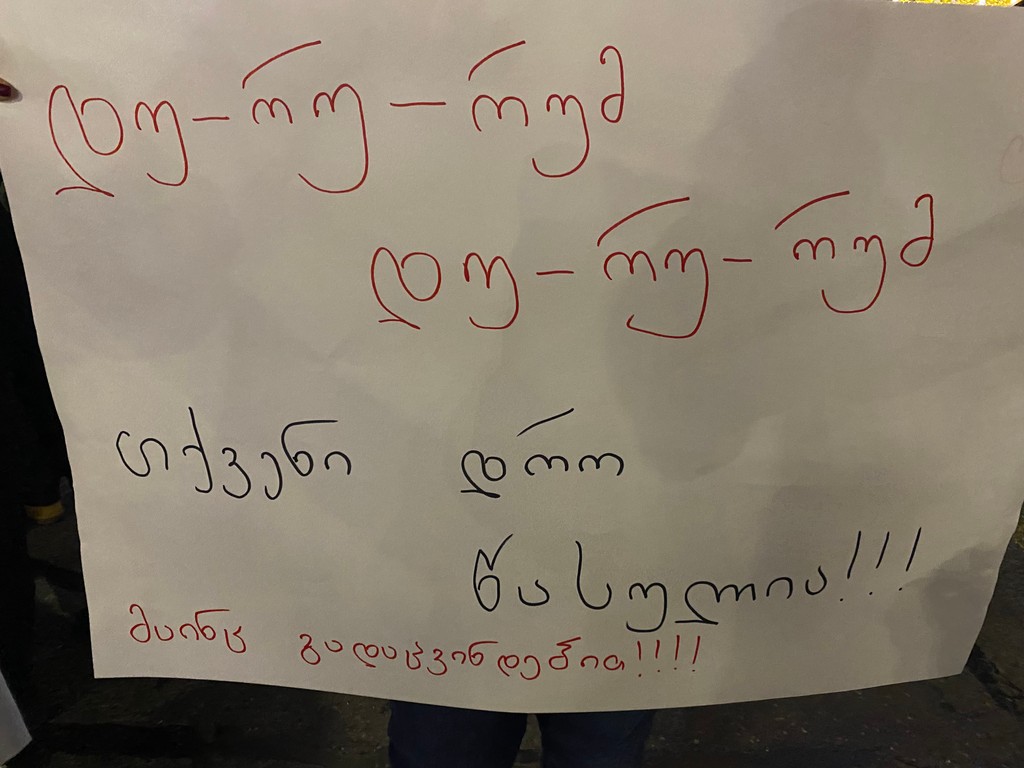 დუ-რუ-რუმ
დუ-რუ-რუმ
თქვენი დრო
წასულია!!!
მაინც გადაცვინდებით!!!!